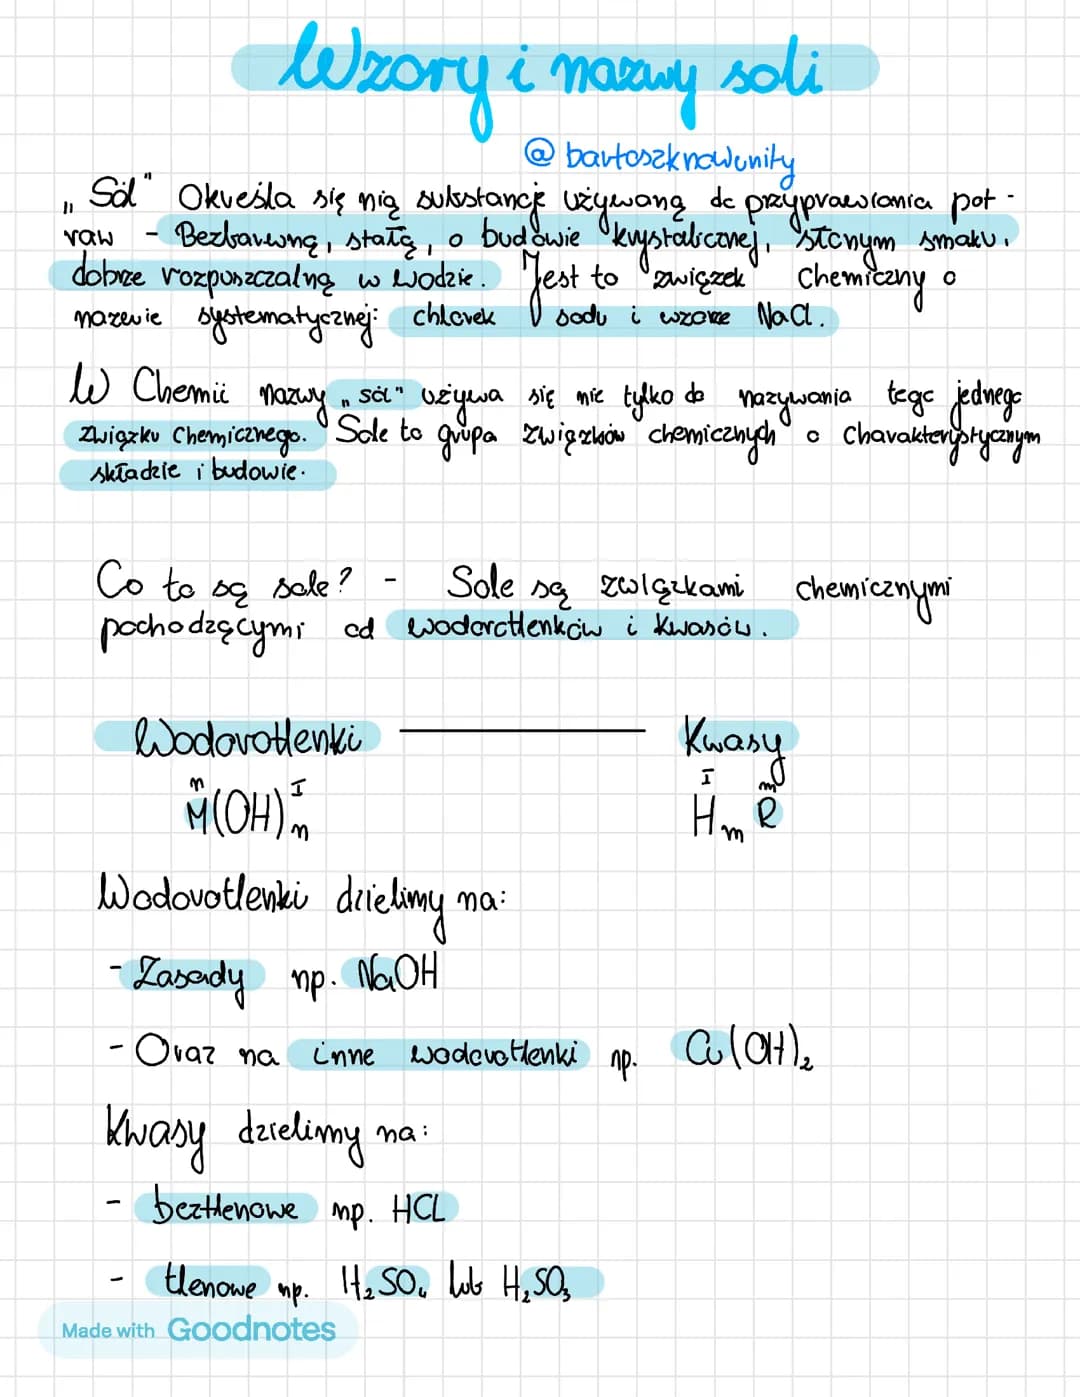 Wzory i nazwy soli
@bartoszknowunity
„Sól" Określa się nią substancję używaną do przyprawiania pot-
raw - Bezbarwną, stałą, o budowie krystalicznej, słonym smaku,
dobrze rozpuszczalną w wodzie. Jest to związek Chemiczny o
nazwie systematycznej: chlorek sodu i wzorze NaCl.
W Chemii nazwy „sól" używa się nie tylko do nazywania tego jednego
Związku Chemicznego. Sole to grupa związków chemicznych o Charakterystycznym
składzie i budowie.
Co to są sole? - Sole są związkami chemicznymi
pochodzącymi od wodorotlenków i kwasów.
Wodorotlenki Kwasy
n I I m
M(OH)n HmR
Wodorotlenki dzielimy na:
- Zasady np. NaOH
- Oraz na inne wodorotlenki np. Cu(OH)₂
Kwasy dzielimy na:
- beztlenowe np. HCL
- tlenowe np. H₂SO₄ lub H₂SO₃
Made with Goodnotes